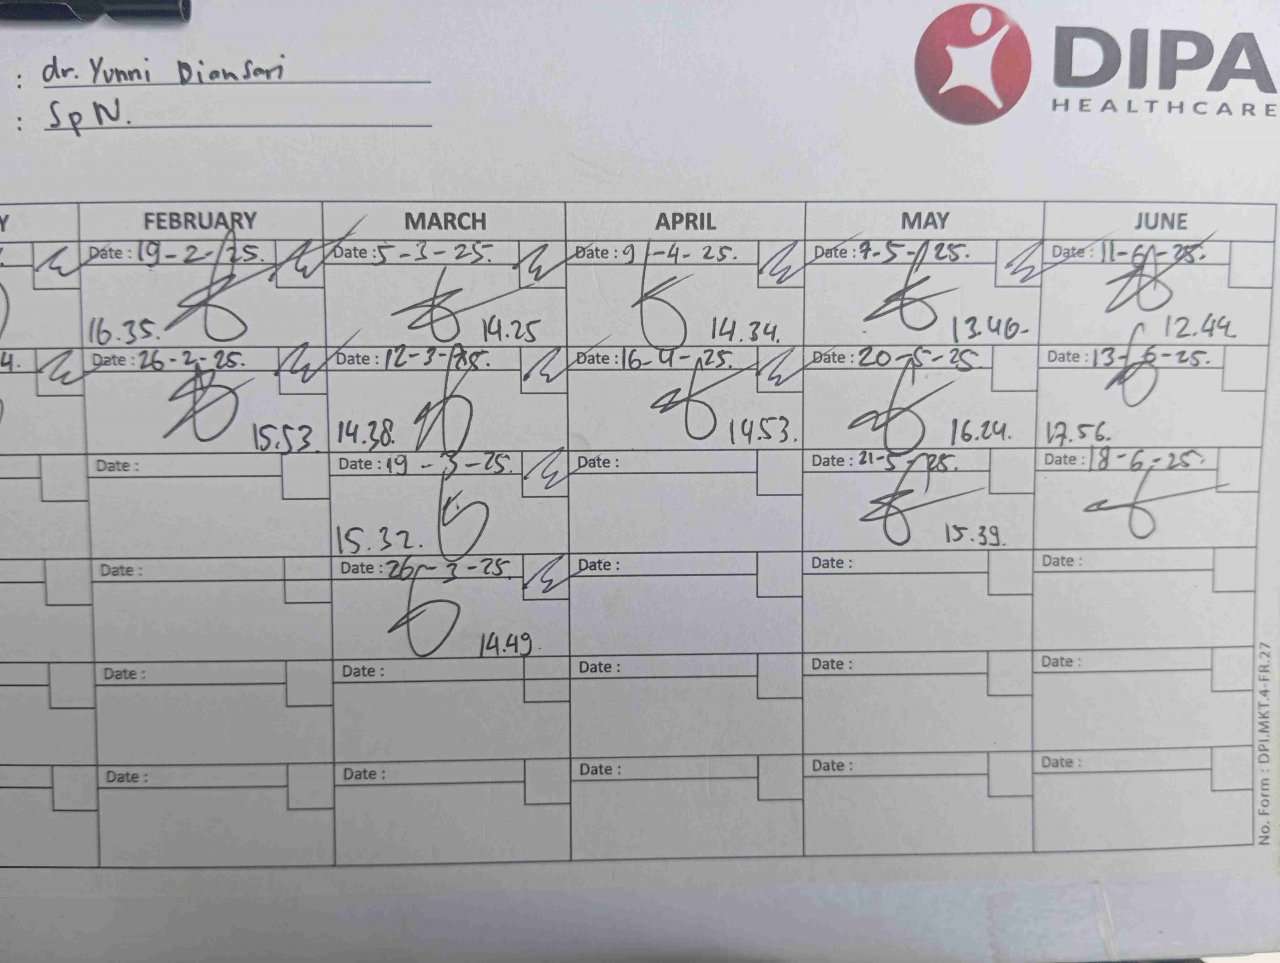 : dr. Yunni Diansari
: SpN.
DIPA
HEALTHCARE
Y FEBRUARY MARCH APRIL MAY JUNE
Date : 19-2-25. Date : 5-3-25. Date : 9-4-25. Date : 7-5-25. Date : 11-6-25.
16.35. 14.25 14.34. 13.46. 12.44
4. Date : 26-2-25. Date : 12-3-25. Date : 16-4-25. Date : 20-5-25. Date : 13-6-25.
15.53 14.38. 14.53. 16.24. 17.56.
Date : Date : 19-3-25. Date : Date : 21-5-25. Date : 18-6-25.
15.32. 15.39.
Date : Date : 26-3-25. Date : Date : Date :
14.49.
Date : Date : Date : Date : Date :
Date : Date : Date : Date : Date :
No. Form : DPI.MKT.4-FR.27